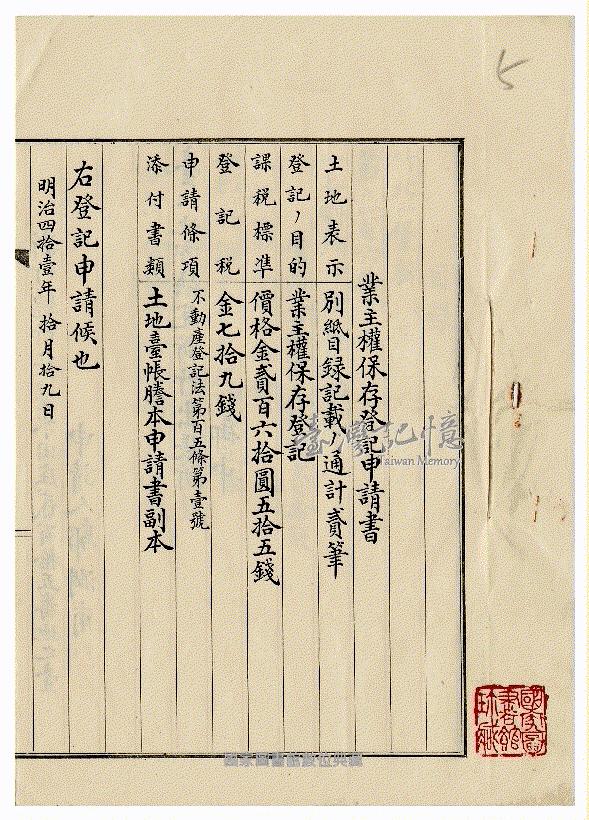 5
業主權保存登記申請書
土地表示 別紙目録記載ノ通計貳筆
登記ノ目的 業主權保存登記
課税標準 價格金貳百六拾圓五拾五錢
登記税 金七拾九錢
申請條項 不動產登記法第百五條第壹號
添付書類 土地臺帳謄本申請書副本
右登記申請候也
明治四拾壹年拾月拾九日
臺灣記憶
Taiwan Memory
國家圖書館數位典藏
國家圖書館珍藏